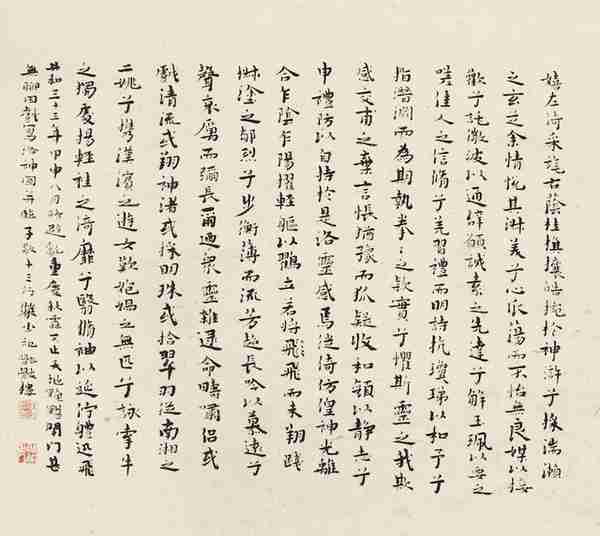 嬉左倚采旄右蔭桂旗攘皓捥於神滸兮採湍瀨
之玄芝余情悅其淑美兮心振蕩而不怡無良媒以接
歡兮託微波以通辭願誠素之先達兮解玉珮以要之
嗟佳人之信脩兮羌習禮而明詩抗瓊珶以和予兮
指潛淵而為期執拳拳之款實兮懼斯靈之我欺
感交甫之棄言悵猶豫而狐疑收和顏以靜志兮
申禮防以自持於是洛靈感焉徙倚仿偟神光離
合乍陰乍陽擢輕軀以鶴立若将飛飛而未翔踐
椒塗之郁烈兮步衡薄而流芳超長吟以慕遠兮
聲哀厲而彌長爾迺眾靈雜遝命疇嘯侶或
戲清流或翔神渚或採明珠或拾翠羽從南湘之
二姚兮攜漢濱之遊女歎匏媧之無匹兮詠牽牛
之獨處揚輕袿之倚靡兮翳脩袖以延佇體迅飛
共和三十三年甲申八月時亂重慶秋霖不止天池明門
無聊因戲寫洛神圖并臨子敬十三行